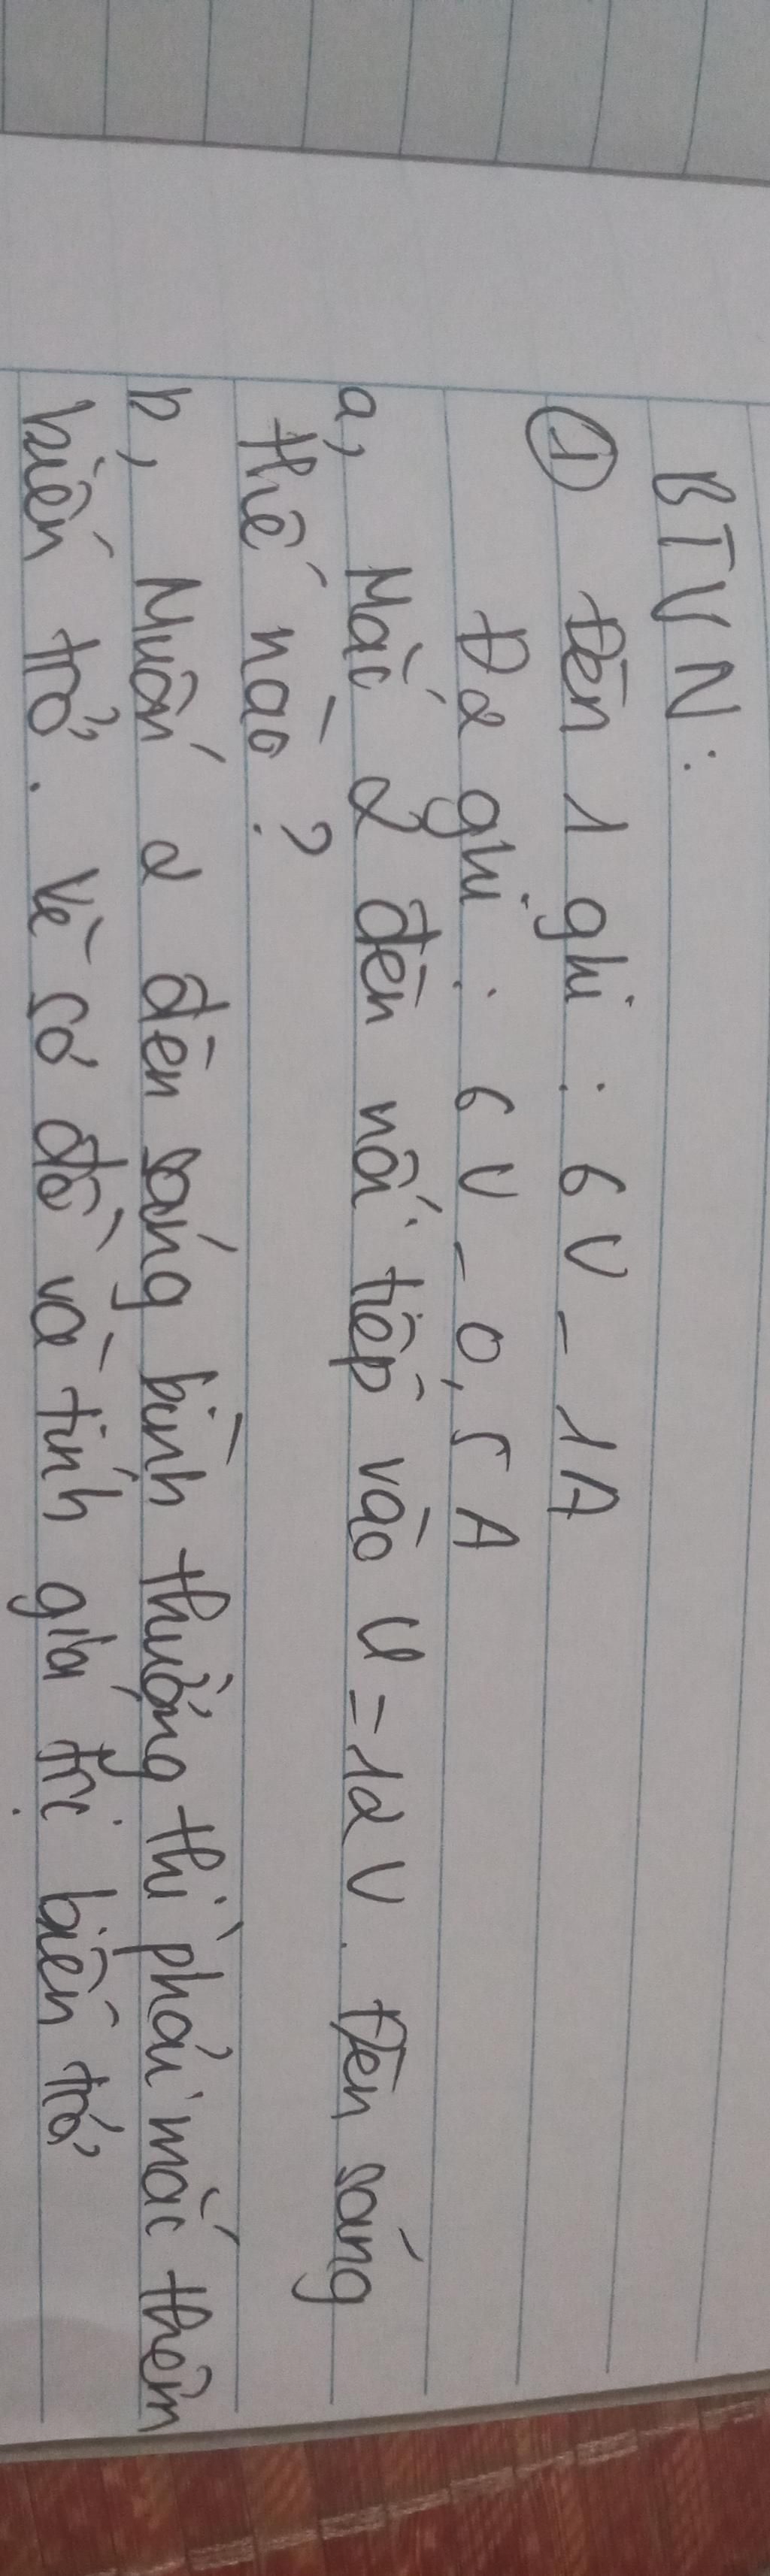 BTVN:
① Đèn 1 ghi : 6V - 1A
Đ2 ghi : 6V - 0,5A
a, Mắc 2 đèn nối tiếp vào U = 12V. Đèn sáng
thế nào ?
b, Muốn 2 đèn sáng bình thường thì phải mắc thêm
biến trở. Vẽ sơ đồ và tính giá trị biến trở